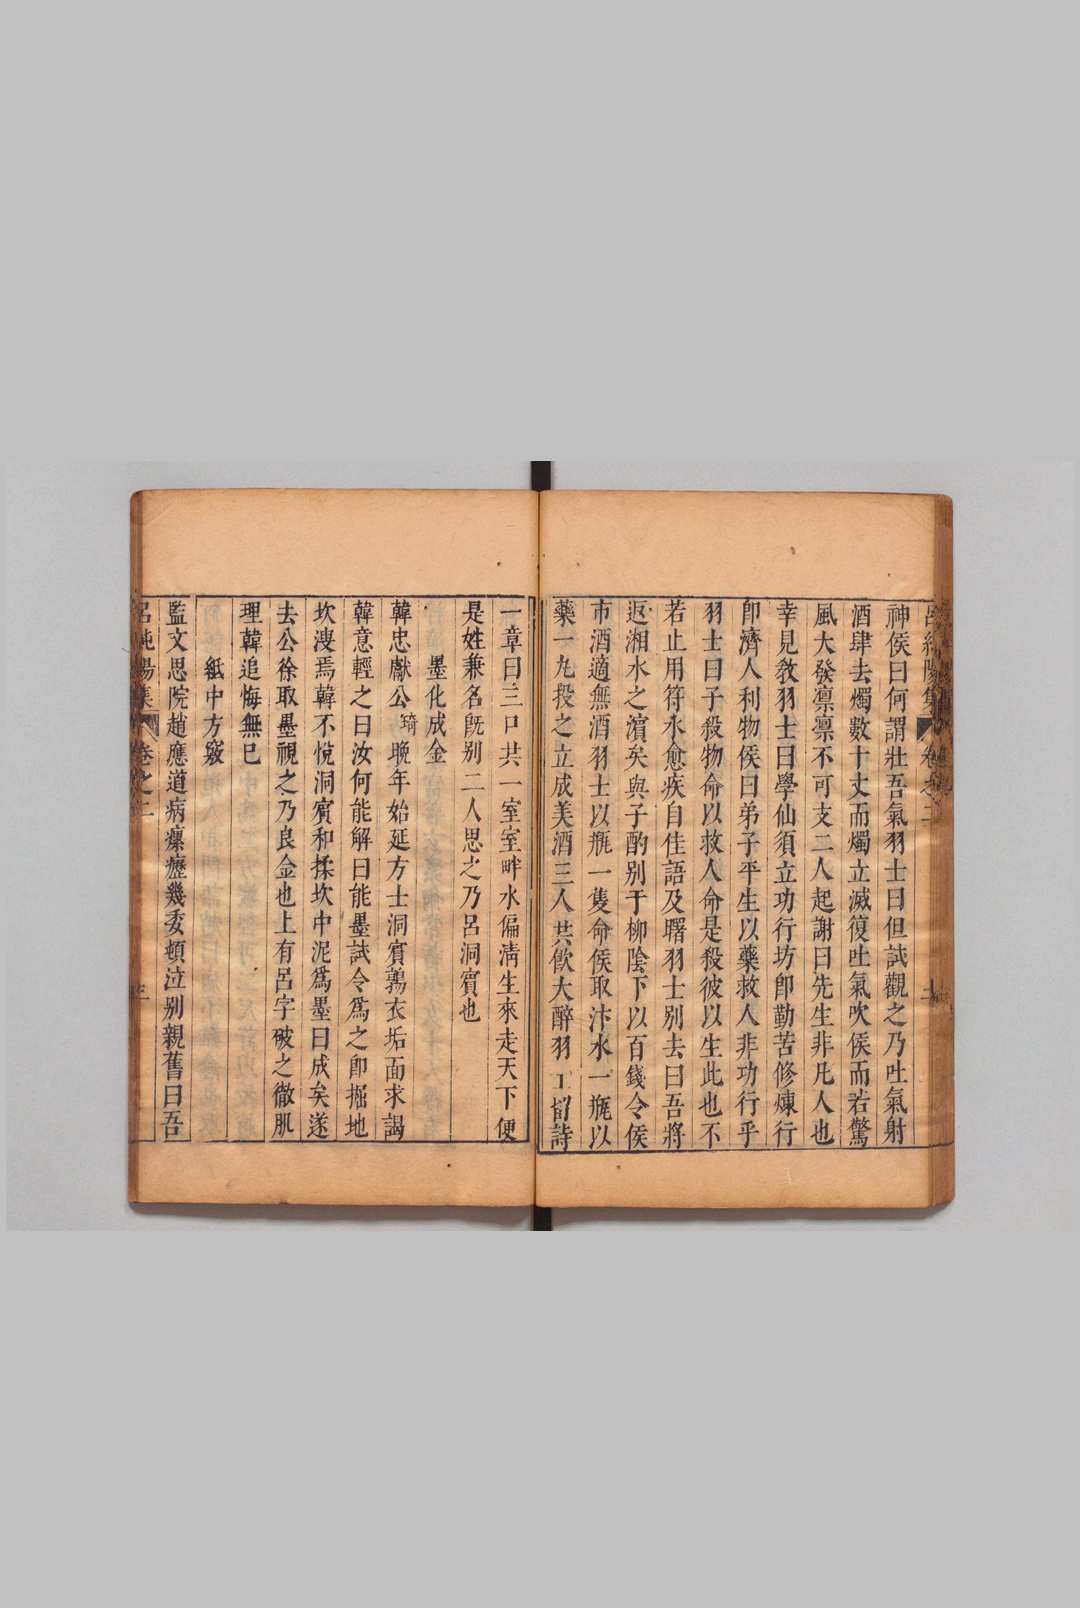 神侯曰何謂壯吾氣羽士曰但試觀之乃吐氣射
酒肆去燭數十丈而燭立滅復吐氣吹侯而若驚
風大發凛凛不可支二人起謝曰先生非凡人也
幸見教羽士曰學仙須立功行坊卽勤苦修煉行
卽濟人利物侯曰弟子平生以藥救人非功行乎
羽士曰子殺物命以救人命是殺彼以生此也不
若止用符水愈疾自佳語及曙羽士別去曰吾將
返湘水之濵矣與子酌别于柳陰下以百錢令侯
市酒適無酒羽士以瓶一隻命侯取汴水一瓶以
藥一丸投之立成美酒三人共飲大醉羽士留詩
一章曰三口共一室室畔水偏清生來走天下便
是姓兼名旣别二人思之乃呂洞賓也
墨化成金
韓忠獻公琦晩年始延方士洞賓鶉衣垢面求謁
韓意輕之曰汝何能解曰能墨試令爲之卽掘地
坎溲焉韓不悅洞賓和揉坎中泥爲墨曰成矣遂
去公徐取墨視之乃良金也上有呂字破之徹肌
理韓追悔無已
紙中方竅
監文思院趙應道病瘰癧幾委頓泣别親舊曰吾
呂純陽集 卷之二 三